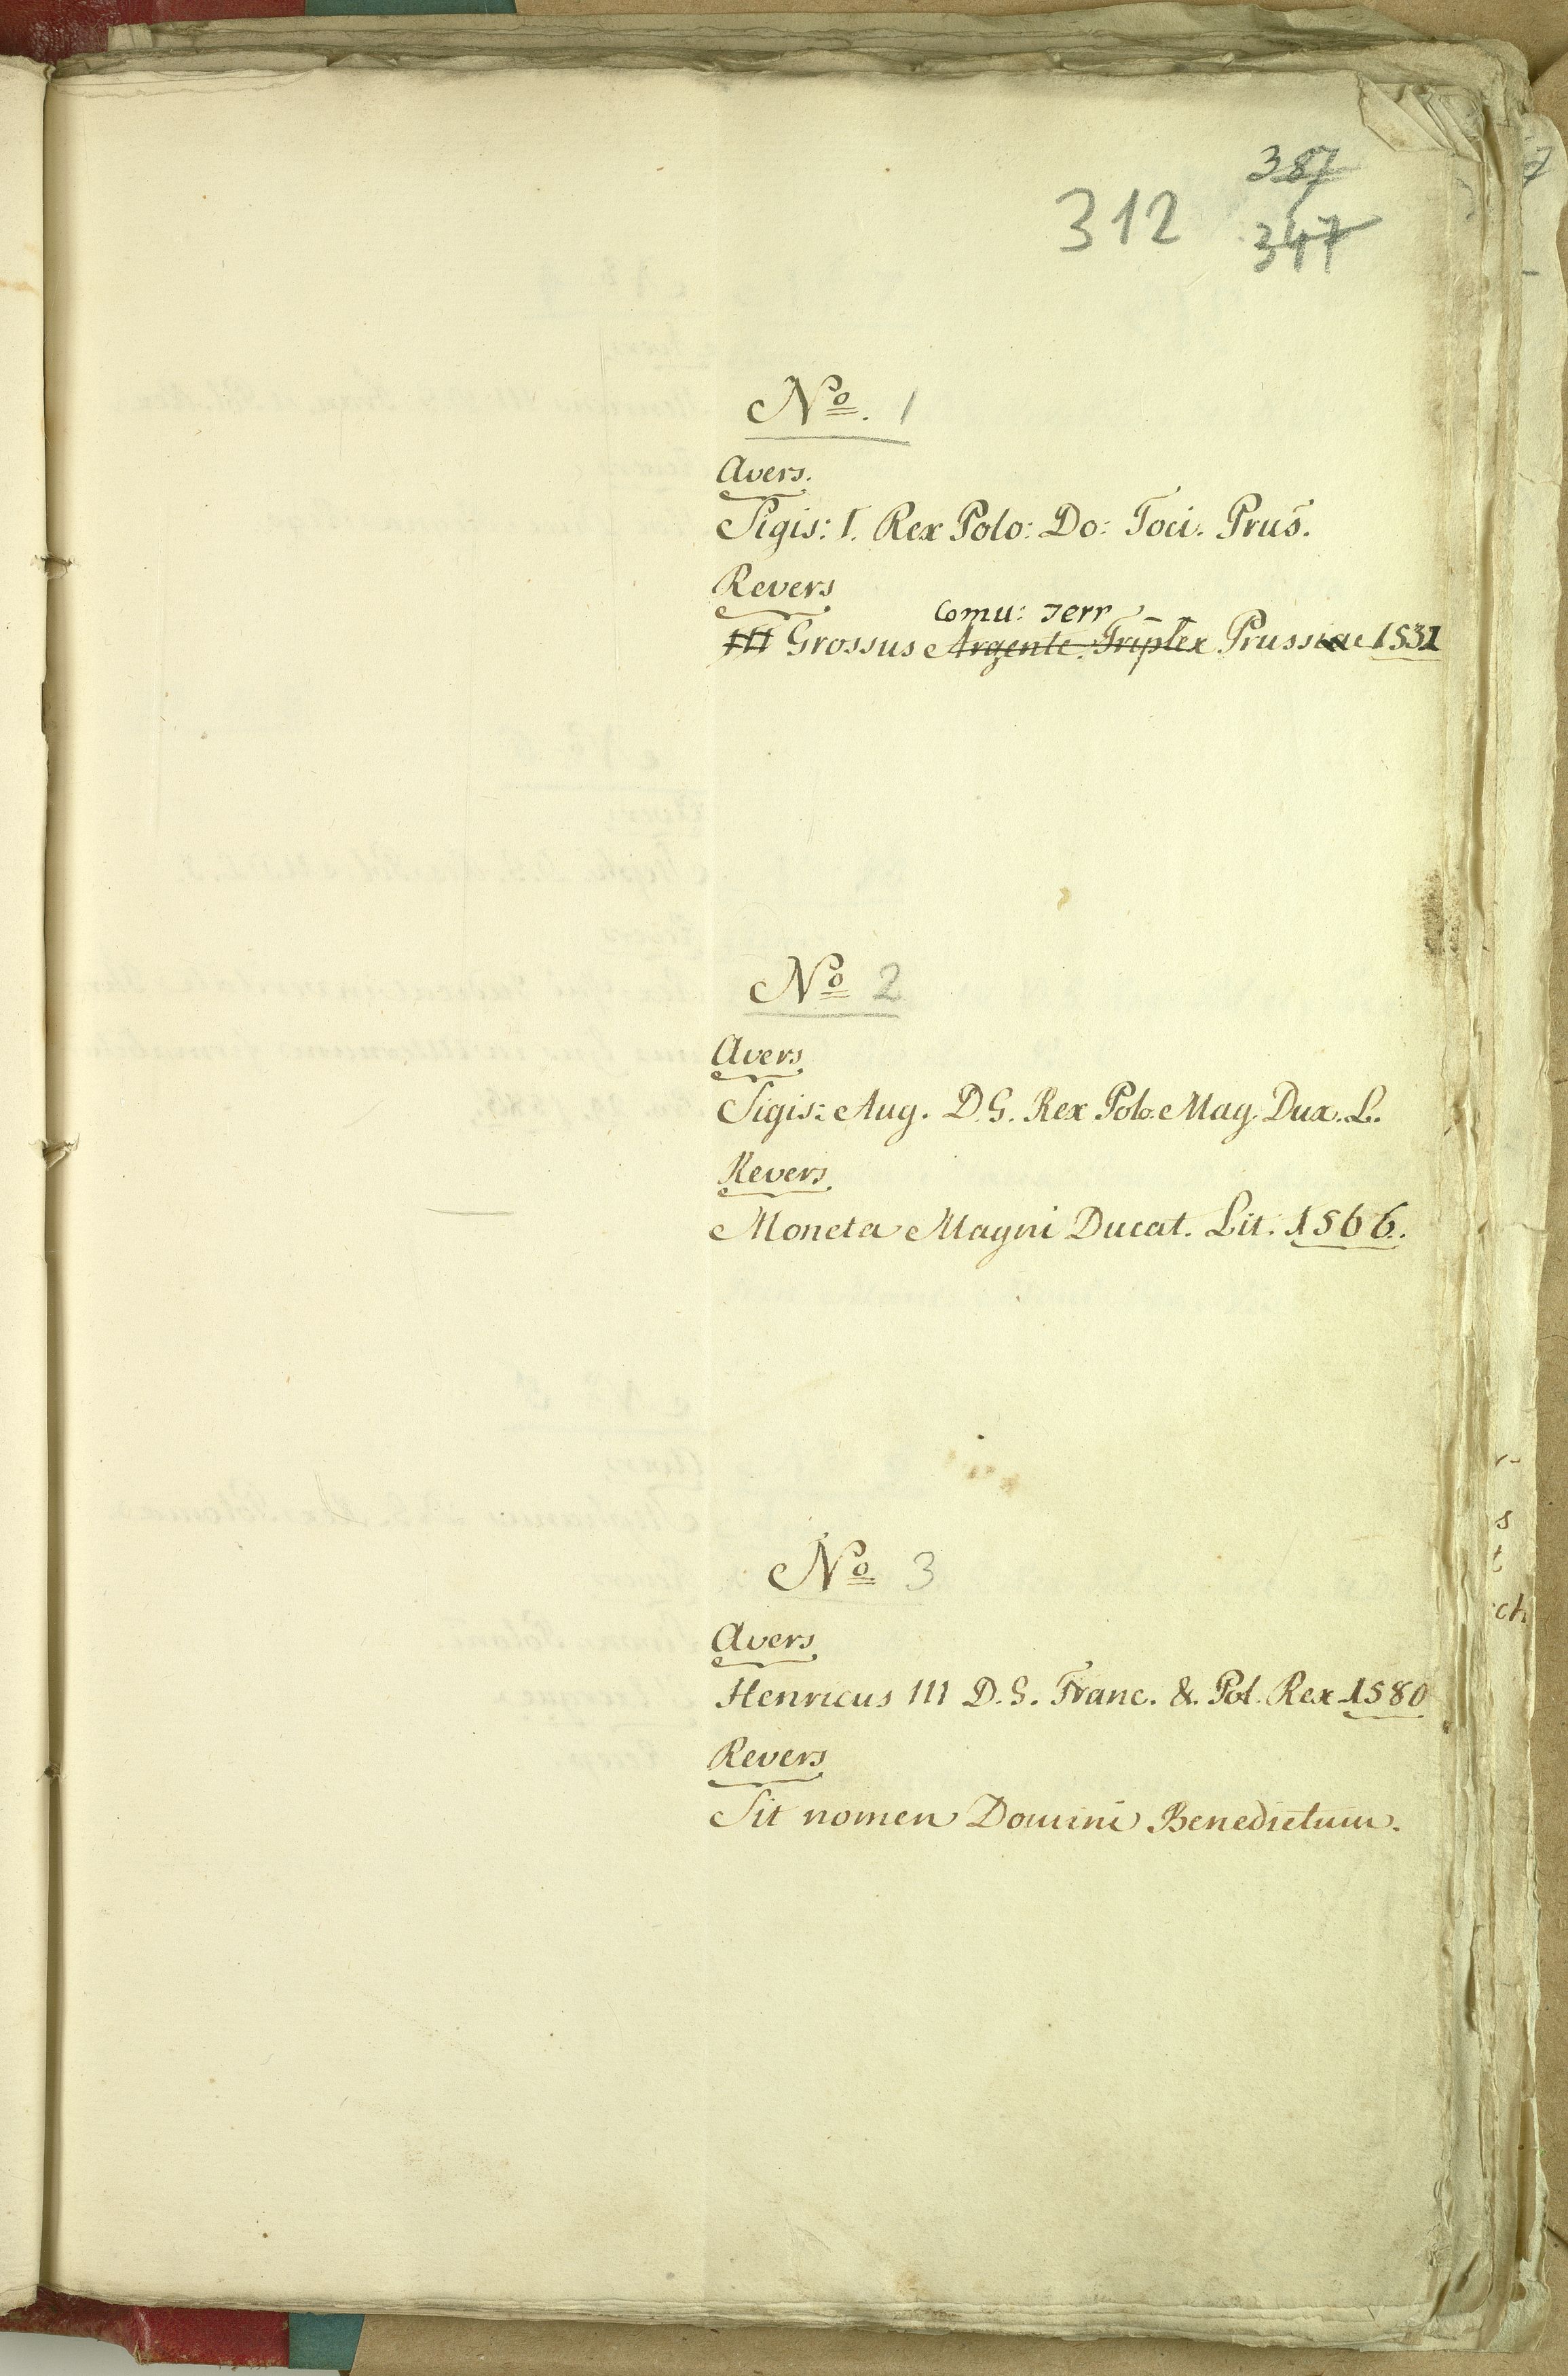 387
312
347
No. 1
Avers.
Sigis: I. Rex Polo: Do: Toci. Prus.
Revers
Comu: Terr
III Grossus Argente. Triplex Prussiae 1531
No 2
Avers
Sigis: Aug. D.G. Rex Polo. Mag. Dux. L.
Revers
Moneta Magni Ducat. Lit. 1566.
No 3
Avers
Henricus III D.G. Franc. & Pol. Rex 1580
Revers
Sit nomen Domini Benedictum.